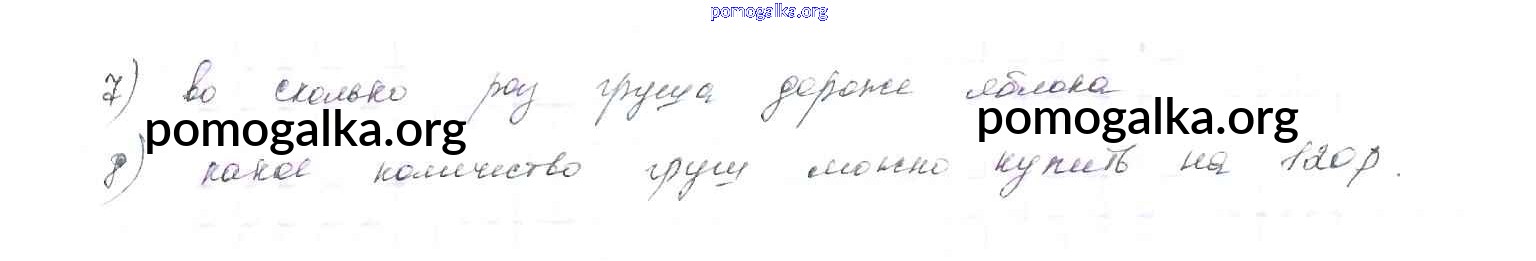 pomogalka.org
7) во сколько раз груша дороже яблока
pomogalka.org pomogalka.org
8) какое количество груш можно купить на 120 р.